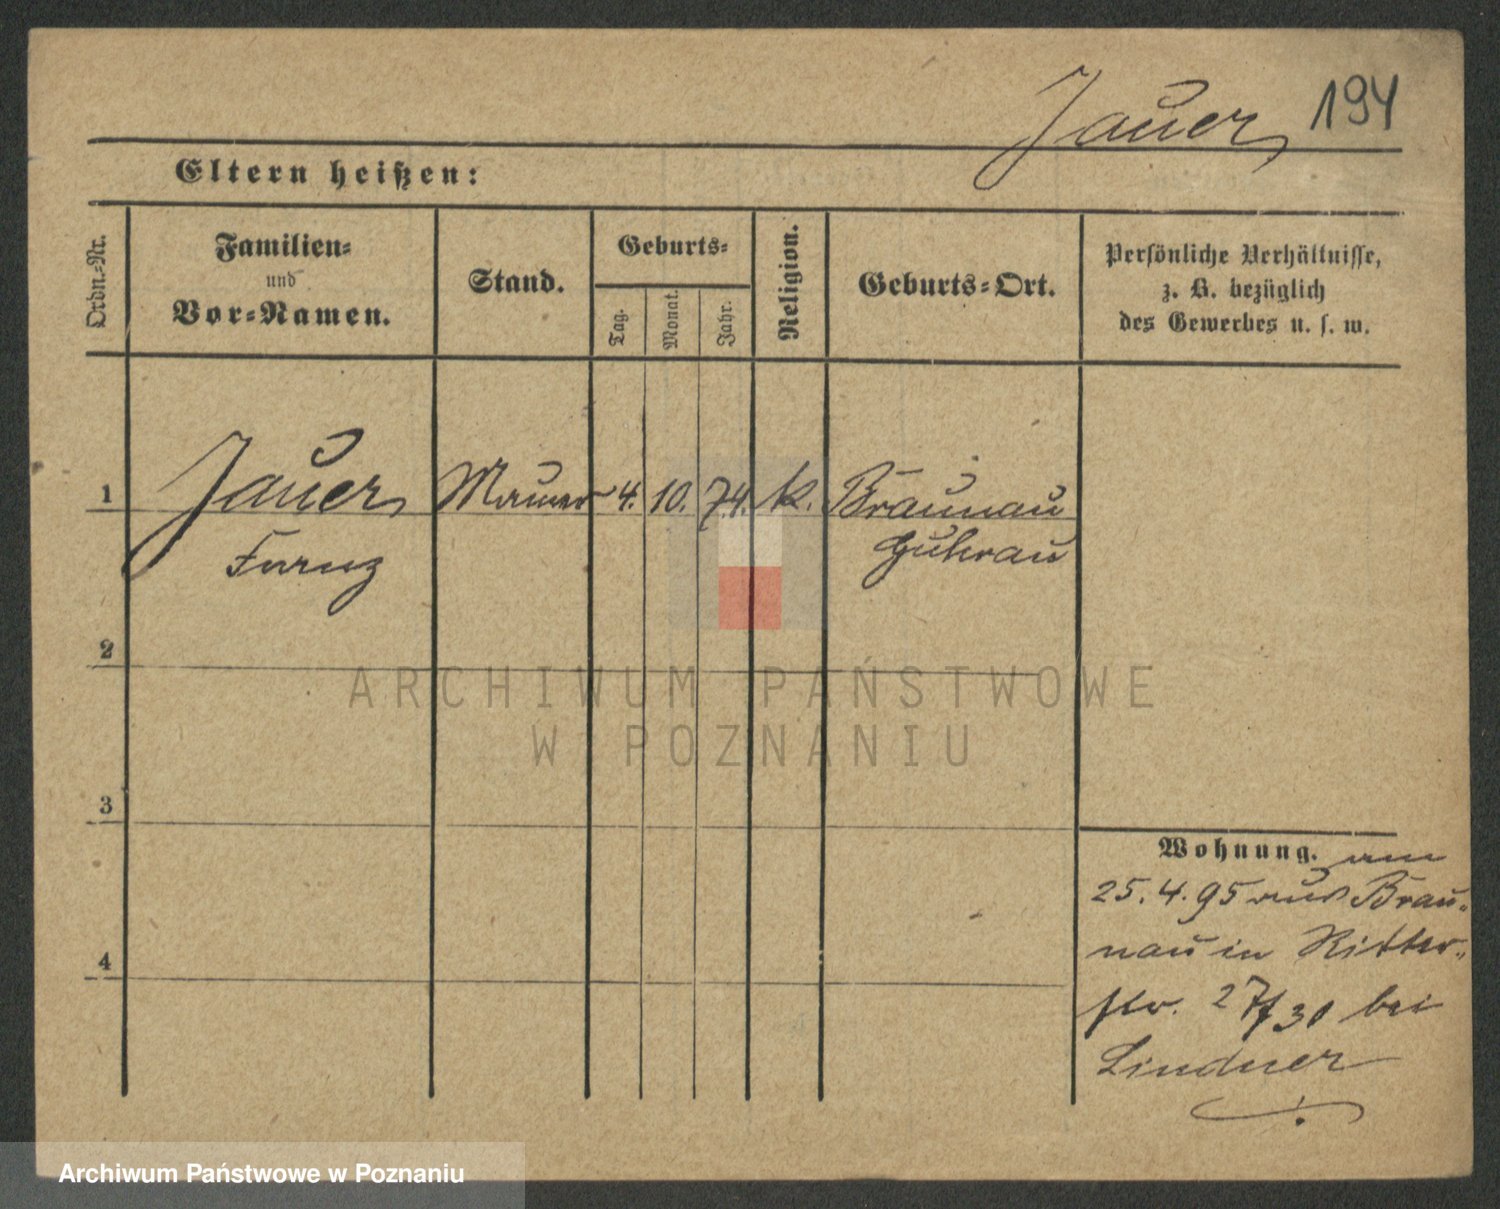 Jauer 194
Eltern heißen:
Ordn.=Nr.
Familien=
und
Vor=Namen.
Stand.
Geburts=
Tag.
Monat.
Jahr.
Religion.
Geburts=Ort.
Persönliche Verhältnisse,
z. B. bezüglich
des Gewerbes u. s. w.
1 Jauer Maurer 4. 10. 74. k. Braunau
Franz Guhrau
2
ARCHIWUM PAŃSTWOWE
W POZNANIU
3
Wohnung. am
25. 4. 95 aus Brau=
nau in Ritter=
str. 27/30 bei
Lindner
4
Archiwum Państwowe w Poznaniu